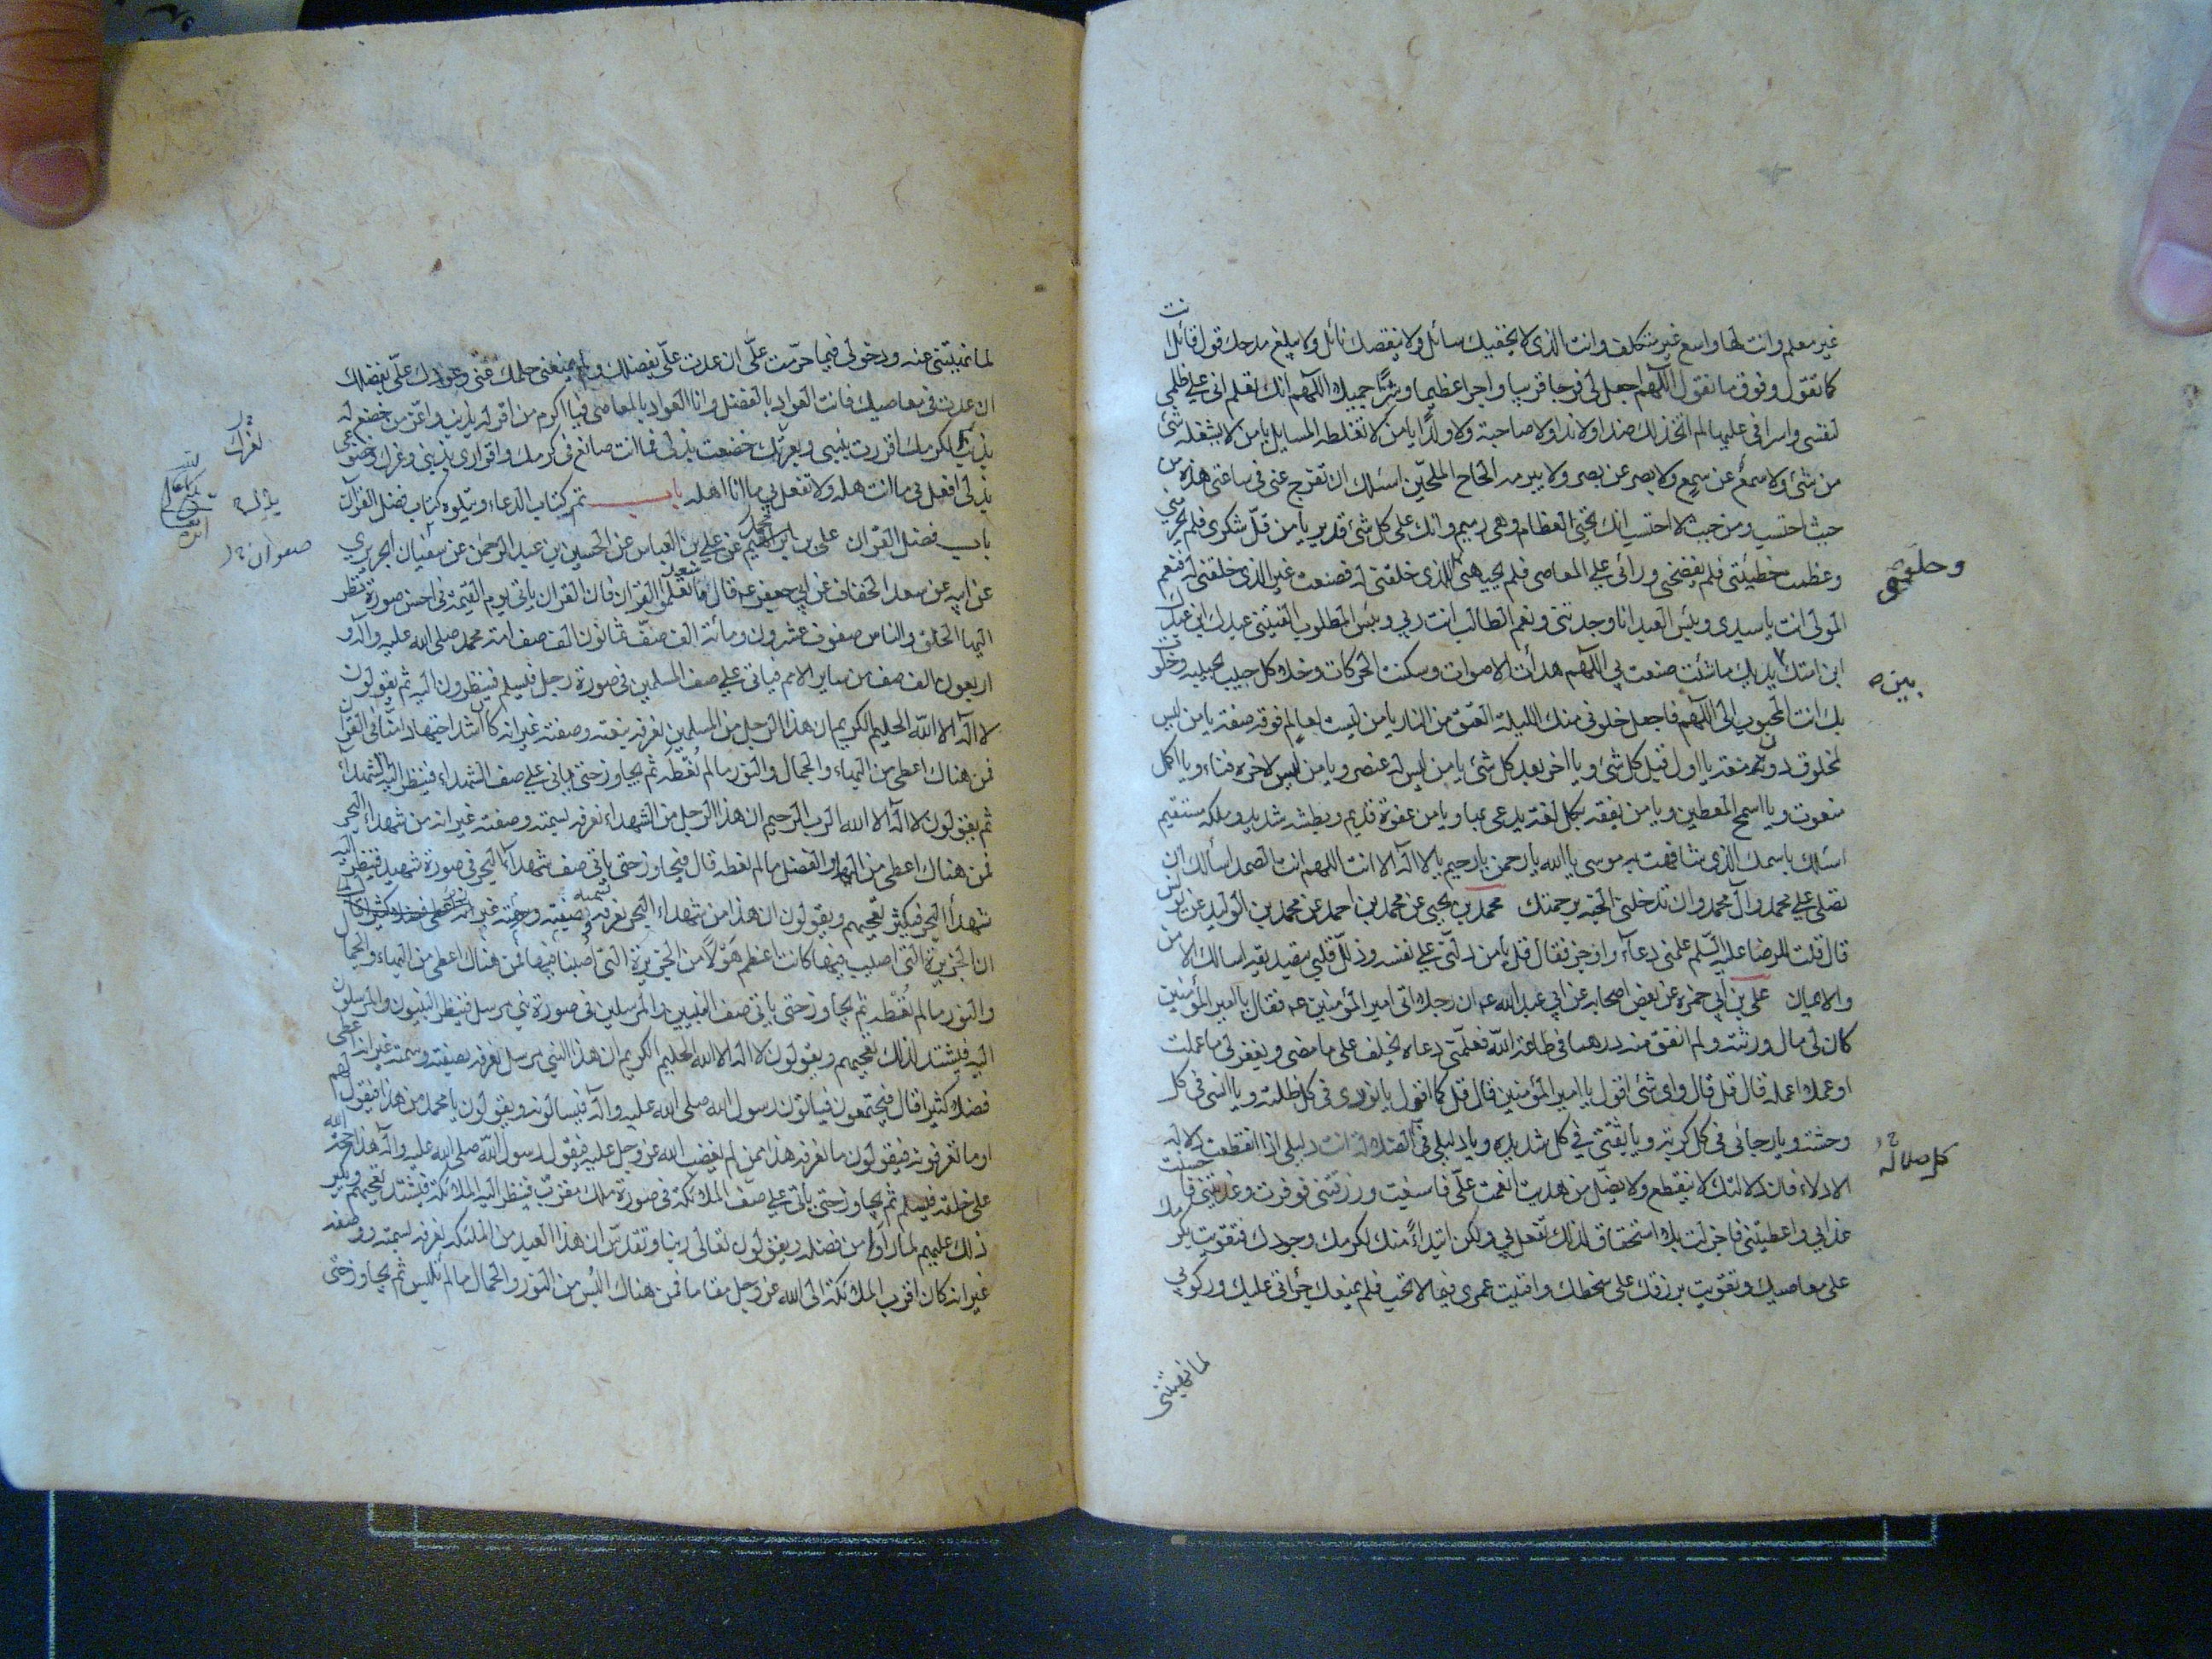 غير معلم وانت لها واسع غير متكلف وانت الذى لا يخفيك سائل ولا ينقصك نائل ولا يبلغ مدحك قول قائل انت
كما تقول وفوق ما نقول اللهم اجعل لى فرجا قريبا واجرا عظيما وسترا جميلا اللهم انك تعلم انى على ظلمى
لنفسى واسرافى عليها لم اتخذ لك ضدا ولا ندا ولا صاحبة ولا ولدا يا من لا تغلطه المسايل يا من لا يشغله شئ
من شئ ولا سمع عن سمع ولا بصر عن بصر ولا يبرمه الحاح الملحين اسئلك ان تفرج عنى فى ساعتى هذه من
حيث احتسب ومن حيث لا احتسب انك تحيى العظام وهى رميم وانك على كل شئ قدير يا من قل شكرى فلم يحرمنى
وعظمت خطيئتى فلم يفضحنى ورائى على المعاصى فلم يجبهنى وخلقنى للذى خلقنى له فصنعت غير الذى خلقنى له فنعم
المولى انت يا سيدى وبئس العبد انا وجدتنى ونعم الطالب انت ربى وبئس المطلوب الفيتنى عبدك ابن عبدك
ابن امتك بين يديك ما شئت صنعت بى اللهم هدأت الاصوات وسكنت الحركات وخلا كل حبيب بحبيبه وخلوت
بك انت المحبوب الى اللهم فاجعل خلوتى منك الليلة العتق من النار يا من ليست لعالم فوقه صفة يا من ليس
لمخلوق دونه منعة يا اول قبل كل شئ ويا اخر بعد كل شئ يا من ليس له عنصر ويا من ليس لاخره فناء ويا اكمل
منعوت ويا اسمح المعطين ويا من يفقه بكل لغة يدعى بها ويا من عفوه قديم وبطشه شديد وملكه مستقيم
اسئلك باسمك الذى شافهت به موسى يا الله يا رحمن يا رحيم يا لا اله الا انت اللهم انت الصمد اسألك ان
تصلى على محمد وآل محمد وان تدخلنى الجنة برحمتك محمد بن يحيى عن محمد بن احمد عن محمد بن الوليد عن يونس
قال قلت للرضا عليه السلم علمنى دعاء واوجز فقال قل يا من دلنى على نفسه وذلل قلبى بتصديقه اسالك الامن
والايمان على بن ابى حمزة عن بعض اصحابه عن ابى عبد الله عه ان رجلا اتى امير المؤمنين عه فقال يا امير المؤمنين
كان لى مال ورثته ولم انفق منه درهما فى طاعة الله فعلمنى دعاء يخلف على ما مضى ويغفر لى ما عملت
او عملا اعمله قال قل قال واى شئ اقول يا امير المؤمنين قال قل كما اقول يا نورى فى كل ظلمة ويا انسى فى كل
وحشة ويا رجائى فى كل كربة ويا ثقتى فى كل شديدة ويا دليلى فى الضلالة انت دليلى اذا انقطعت دلالة
الادلاء فان دلالتك لا ينقطع ولا يضل من هديت انعمت على فاسبغت ورزقتنى فوفرت وغذيتنى فاحسنت
غذائى واعطيتنى فاجزلت بلا استحقاق لذلك بفعل بى ولكن ابتداء منك لكرمك وجودك فتقويت بكرمك
على معاصيك وتقويت برزقك على سخطك وافنيت عمرى فيما لا تحب فلم يمنعك جرأتى عليك وركوبى
لما نهيتنى
وخلقنى
بين ه
كل ضلالة
لما نهيتنى عنه ودخولى فيما حرمت على ان عدت على بفضلك ولم يمنعنى حلمك عنى وعودك على بفضلك
ان عدت فى معاصيك فانت العواد بالفضل وانا العواد بالمعاصى فيا اكرم من اقر له بذنب واعز من خضع له
بذل لكرمك اقررت بذنبى وبعزك خضعت بذلى فما انت صانع فى كرمك واقرارى بذنبى وعزك وخضوعى
بذلى افعل بى ما انت اهله ولا تفعل بى ما انا اهله باب تم كتاب الدعاء ويتلوه كتاب فضل القرآن
باب فضل القرآن على بن محمد عن على بن العباس عن الحسين بن عبد الرحمن عن سفيان الجريرى
عن ابيه عن سعد الخفاف عن ابى جعفر عه قال يا سعد تعلموا القرآن فان القران ياتى يوم القيمة فى احسن صورة نظر
اليها الخلق والناس صفوف عشرون ومائة الف صف ثمانون الف صف امة محمد صلى الله عليه وآله و
اربعون الف صف من ساير الامم فياتى على صف المسلمين فى صورة رجل فيسلم فينظرون اليه ثم يقولون
لا اله الا الله الحليم الكريم ان هذا الرجل من المسلمين نعرفه بنعته وصفته غير انه كان اشد اجتهادا منا فى القرآن
فمن هناك اعطى من البهاء والجمال والنور ما لم نعطه ثم يجاوز حتى ياتى على صف الشهداء فينظر اليه الشهداء
ثم يقولون لا اله الا الله الرب الرحيم ان هذا الرجل من الشهداء نعرفه بسمته وصفته غير انه من شهداء البحر
فمن هناك اعطى من البهاء والفضل ما لم نعطه قال فيجاوز حتى ياتى صف شهداء البحر فى صورة شهيد فينظر اليه
شهداء البحر فيكثر تعجبهم ويقولون ان هذا من شهداء البحر نعرفه بسمته وصفته غير
ان الجزيرة التى اصيب فيها كانت اعظم هولا من الجزيرة التى اصبنا فيها فمن هناك اعطى من البهاء والجمال
والنور ما لم نعطه ثم يجاوز حتى ياتى صف النبيين والمرسلين فى صورة نبى مرسل فينظر النبيون والمرسلون
اليه فيشتد لذلك تعجبهم ويقولون لا اله الا الله الحليم الكريم ان هذا النبى مرسل نعرفه بصفته وسمته غير انه اعطى
فضلا كثيرا قال فيجتمعون فياتون رسول الله صلى الله عليه وآله فيسالونه ويقولون يا محمد من هذا فيقول لهم
او ما تعرفونه فيقولون ما نعرفه هذا ممن لم يغضب الله عز وجل عليه فيقول رسول الله صلى الله عليه وآله هذا حجة الله
على خلقه فيسلم ثم يجاوز حتى ياتى على صف الملائكة فى صورة ملك مقرب فينظر اليه الملائكة فيشتد تعجبهم ويكبر
ذلك عليهم لما راوا من فضله ويقولون تعالى ربنا وتقدس ان هذا العبد من الملئكة نعرفه بسمته ووصفه
غير انه كان اقرب الملائكة الى الله عز وجل مقاما فمن هناك البس من النور والجمال ما لم نلبس ثم يجاوز حتى
لعزك